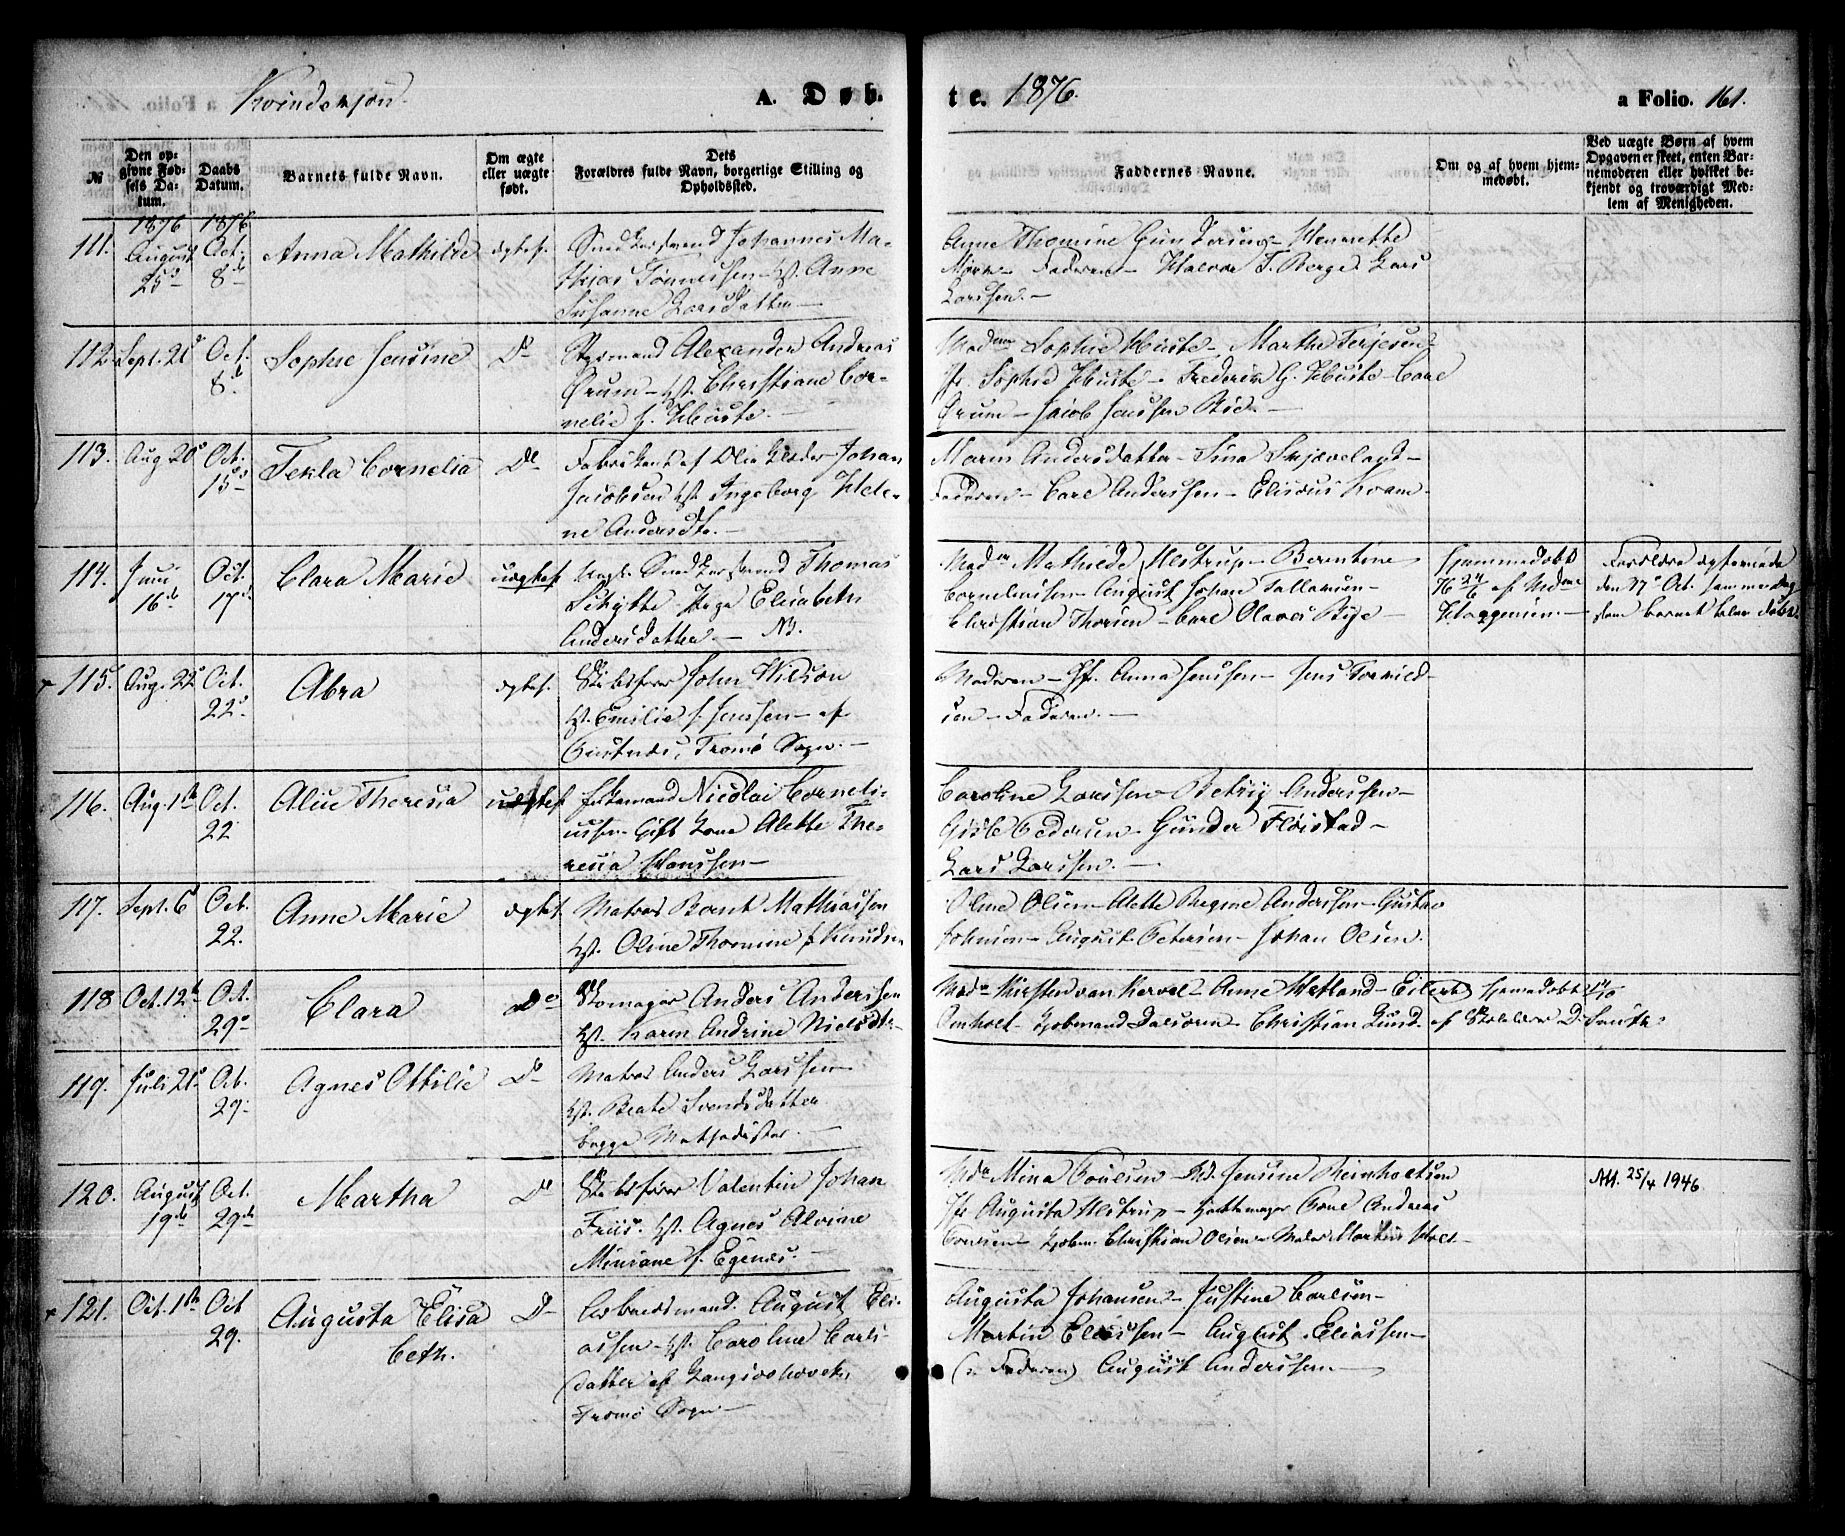 Kvindekjøn. A. Døb-
te. 1876. a Folio. 161.
№
Den op-
givne Fød-
sels Da-
tum.
Daabs
Datum.
Barnets fulde Navn.
Om ægte
eller uægte
født.
Dets
Forældres fulde Navn, borgerlige Stilling og
Opholdssted.
Faddernes Navne.
Om og af hvem hjem-
medøbt.
Ved uægte Børn af hvem
Opgaven er skeet, enten Bar-
nemoderen eller hvilket be-
kjendt og troværdigt Med-
lem af Menigheden.
111.
1876
August
25de
1876
Oct.
8de
Anna Mathilde
ægtef.
Johannes Ma-
thias Tønnessen Hst. Anne
Susanne Larsdatter
Anne Thomine Gundersen - Henrette
Faderen - Halvor T. Berge Lars
Larssen.
112.
Sept. 21
Oct.
8de
Sophie Jensine
Do
Styrmand Alexander Andreas
Ørum - Hst. Christiane Cor-
nelie f. Huste.
Sophie Huste - Marthe Terjesen
Jfr. Sophie Huste - Frederik G. Huste - Carl
Ørum - Jacob Jenssen Bie.
113.
Aug 20
Oct.
15de
Tekla Cornelia
Do
Fabrikant af Olieklæder Johan
Jacobsen Hst. Ingeborg Hele-
ne Andersdtr.
Maren Andersdatter - Sina Skjæveland
Faderen - Carl Anderssen - Elisæus Kvam
114.
Juni
16de
Oct.
17de
Clara Marie
uægtef
Thomas
Schytte Pige Elisabeth
Andersdatter. - NB.
Mathilde Alstrup - Berntine
Corneliussen - August Johan Tallaksen
Christian Thorsen - Carl Olaves Bye
Hjemmedøbt
76 24/6 af Mdme
Haagensen.
Forældre
den 17de Oct. samme Dag
som barnet blev døbt.
115.
Aug. 22
Oct.
22de
Abra
ægtef.
Skibsfører John Wilson
Hst. Emilie f. Jenssen - af
Tromø Sogn.
Moderen - Jfr. Anna Jenssen - Jens Torkild-
sen - Faderen.
116.
Aug. 1ste
Oct.
22
Aline Theresia
uægtef
Nicolai Corneli-
ussen - Gift Kone Alette The-
resia Hanssen
Caroline Larssen - Betsy Anderssen
Pedersen - Gunder Fløistad
Lars Larssen.
117.
Sept. 6
Oct.
22.
Anne Marie
ægtef.
Matros Bernt Mathiassen
Hst. Oline Thomine f. Knudsen
Oline Olsen - Alette Regine Anderssen - Gustav
Johnsen - August Petersen - Johan Olsen.
118
Oct. 12te
Oct.
29de
Clara
Do
Skomager Anders Anderssen
Hst. Karen Andrine Nielsdtr.
Mdme Kirsten van Kervel - Anne Hetland - Eilert
Omholt - Kjøbmand Salvesen - Christian Lund.
Hjemmedøbt
af Skolelærer D. Smith.
119.
Juli 21
Oct.
29
Agnes Ottilie
Do
Matros Anders Larssen
Hst. Beate Svendsdatter
begge Methodister.
120.
August
19de
Oct.
29de
Martha
Do
Skibsfører Valentin Johan
Friis. Hst. Agnes Alvine
Miniane f. Egenæs.
Mdme Mina Poulsen - Md. Jensine Reinholtsen
Jfr Augusta Alstrup - Hattemager Tone Andreas
Poulsen - Kjøbm. Christian Olsen - Maler Martin Holt
Att. 25/4 1946.
121.
Oct. 1ste
Oct
29.
Augusta Elisa
beth.
Do
Arbeidsmand August Eli-
assen - Hst. Caroline Carls-
datter af
Tromø Sogn
Augusta Johansen - Justine Carlsen
Martin Eliassen - August Eliassen
(Faderen) August Anderssen